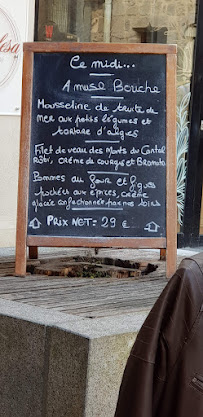 Ce midi...
Amuse Bouche
Mousseline de truite de
mer aux petits légumes et
tartare d'algues
Filet de veau des Monts du Cantal
rôti, crème de courges et Brocolis
Pommes au four et figues
pochées aux épices, crème
glacée confectionnée par nos soins
PRIX NET = 29 €